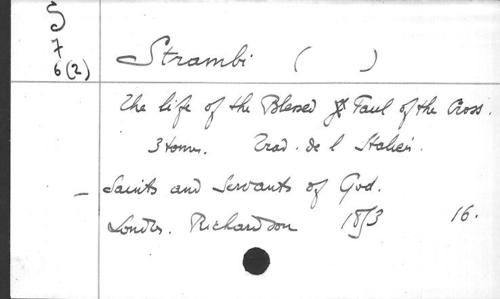 S
7
6(2)
Strambi ( )
The life of the Blessed Paul of the Cross.
3 tomes. Trad. de l Italien.
- Saints and Servants of God.
Londres. Richardson 1853 16.